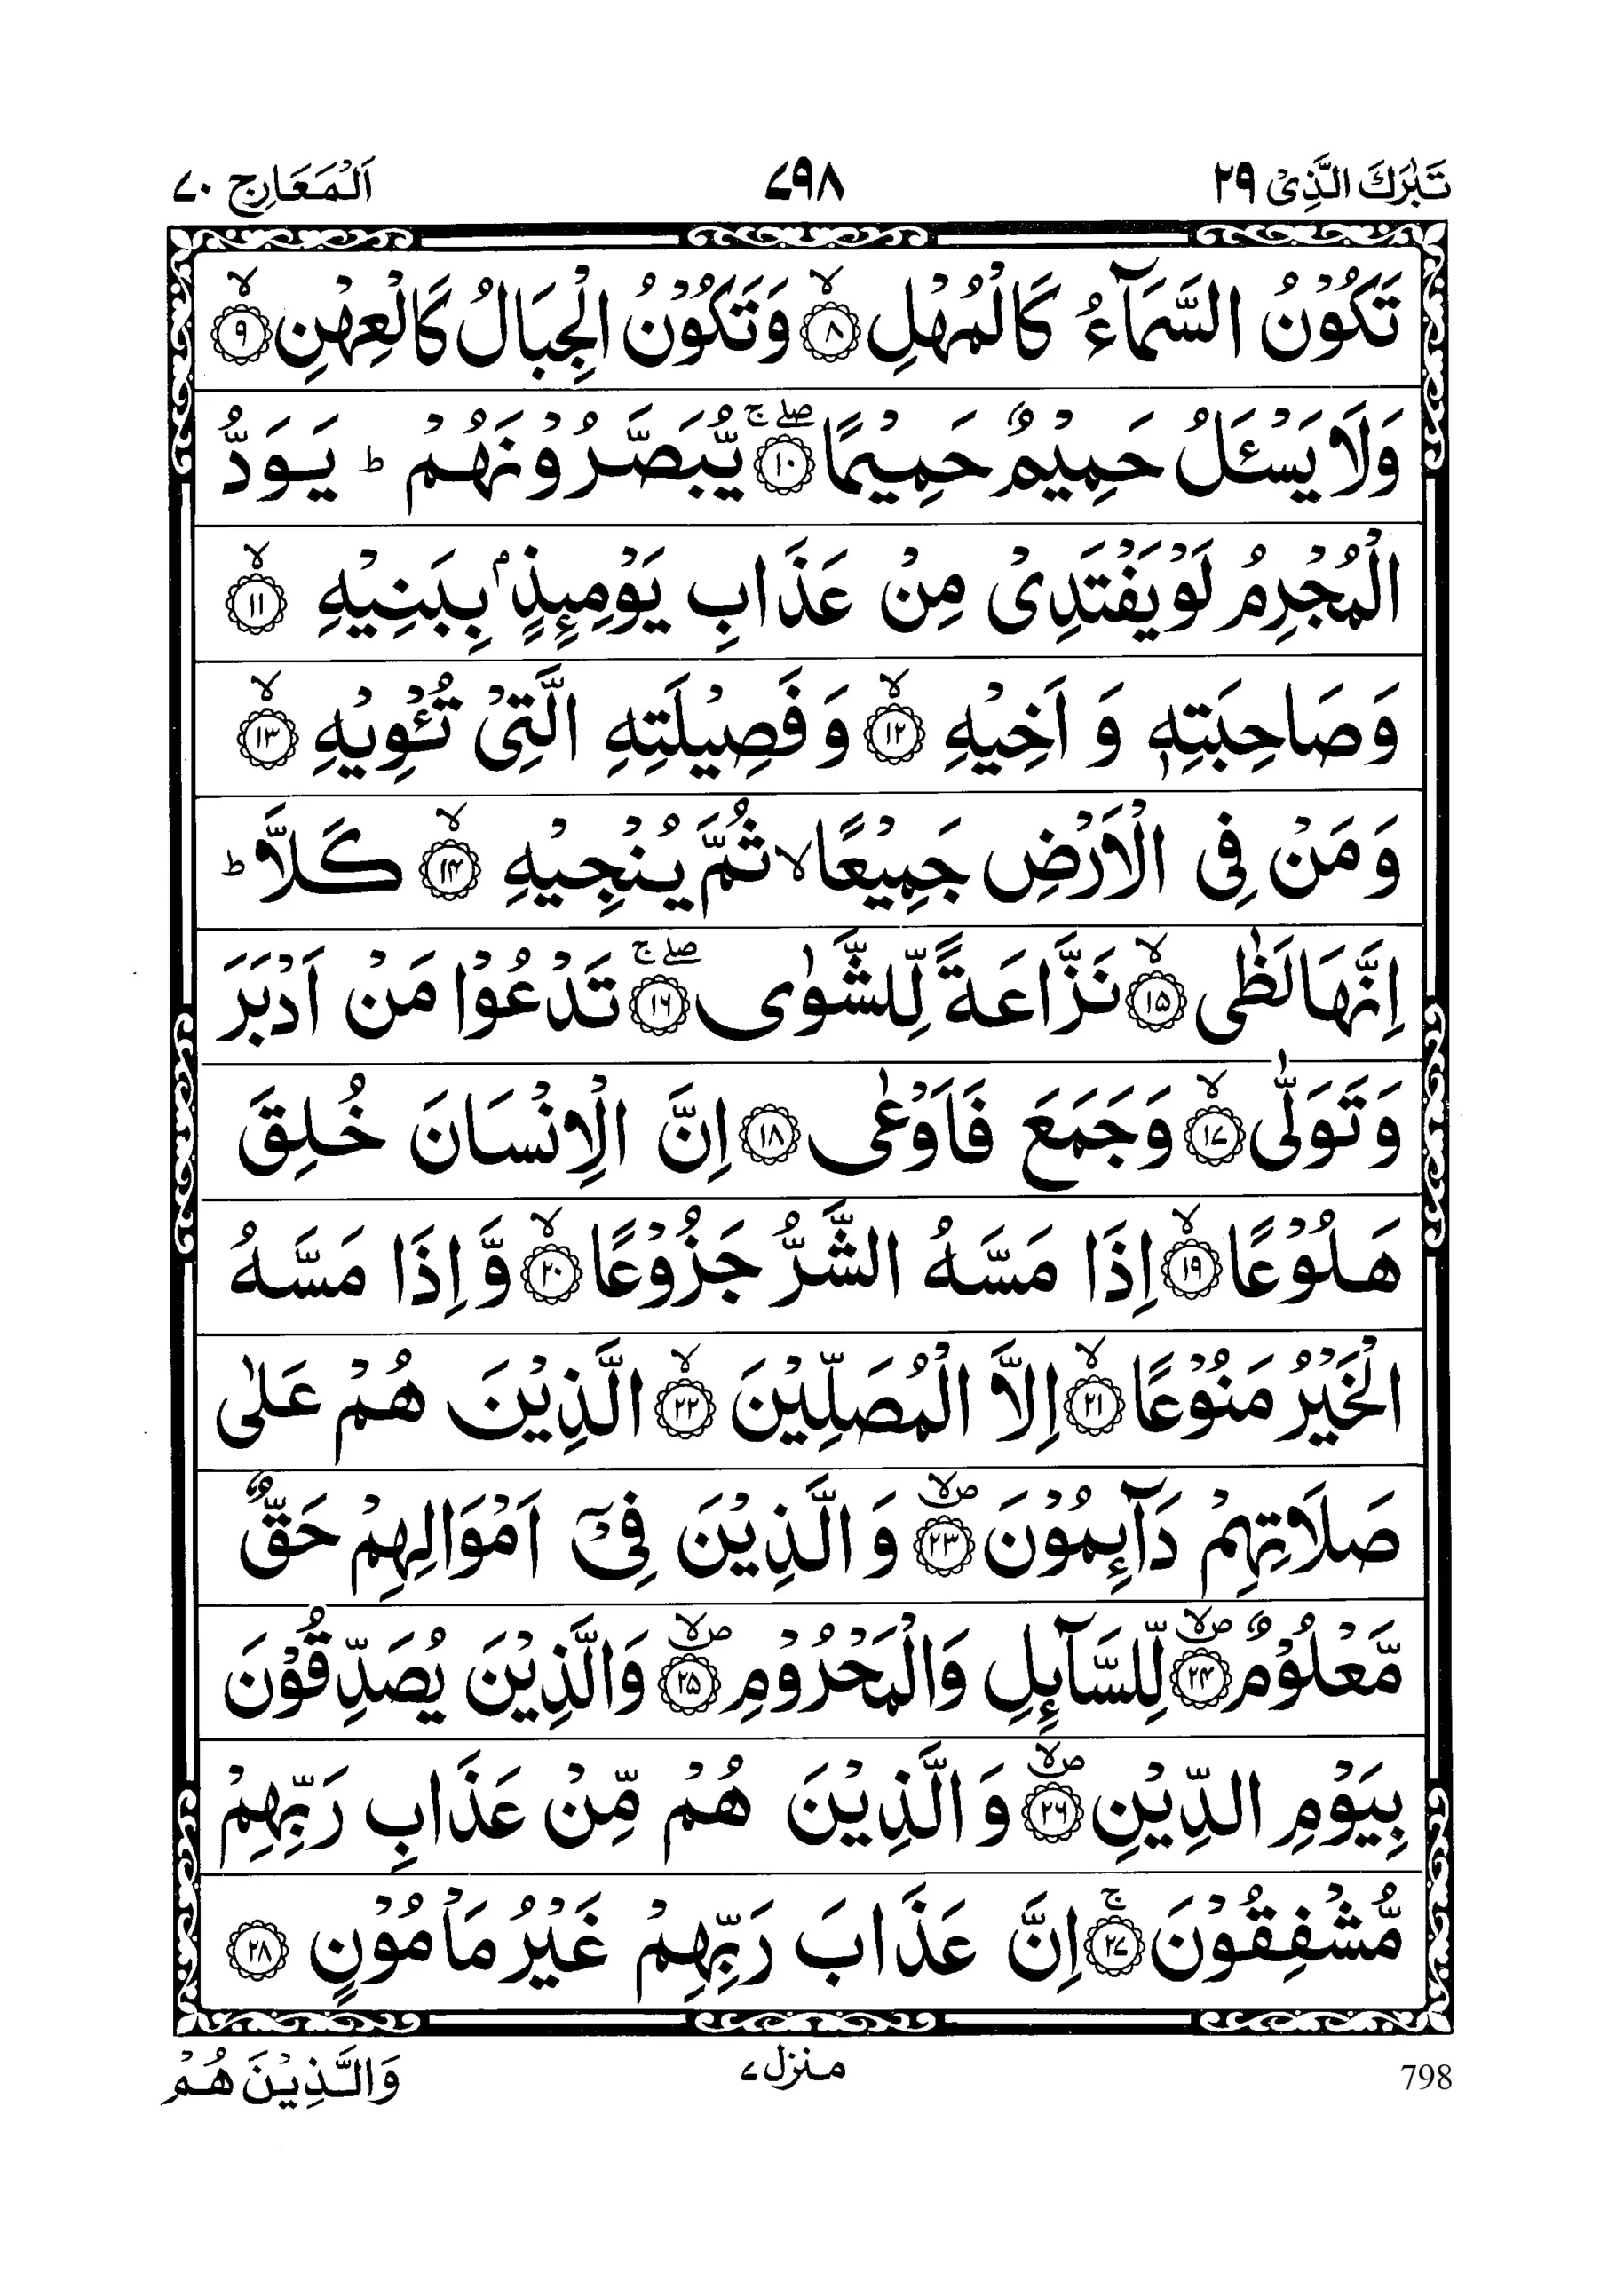 تَبٰرَكَ الَّذِىْ ٢٩
٧٩٨
اَلْمَعَارِج ٧٠
تَكُوْنُ السَّمَآءُ كَالْمُهْلِ ۙ‏﴿٨﴾ وَتَكُوْنُ الْجِبَالُ كَالْعِهْنِ ۙ‏﴿٩﴾
وَلَا يَسْئَلُ حَمِيْمٌ حَمِيْمًا ۖۚ‏﴿١٠﴾ يُّبَصَّرُوْنَهُمْ ؕ يَوَدُّ
الْمُجْرِمُ لَوْ يَفْتَدِىْ مِنْ عَذَابِ يَوْمِئِذٍۢ بِبَنِيْهِ ۙ‏﴿١١﴾
وَصَاحِبَتِهٖ وَ اَخِيْهِ ۙ‏﴿١٢﴾ وَ فَصِيْلَتِهِ الَّتِىْ تُئْوِيْهِ ۙ‏﴿١٣﴾
وَ مَنْ فِى الْاَرْضِ جَمِيْعًا ۙ ثُمَّ يُنْجِيْهِ ۙ‏﴿١٤﴾ كَلَّا ؕ
اِنَّهَا لَظٰى ۙ‏﴿١٥﴾ نَزَّاعَةً لِّلشَّوٰى ۖۚ‏﴿١٦﴾ تَدْعُوْا مَنْ اَدْبَرَ
وَ تَوَلّٰى ۙ‏﴿١٧﴾ وَجَمَعَ فَاَوْعٰى‏﴿١٨﴾ اِنَّ الْاِنْسَانَ خُلِقَ
هَلُوْعًا ۙ‏﴿١٩﴾ اِذَا مَسَّهُ الشَّرُّ جَزُوْعًا ۙ‏﴿٢٠﴾ وَّ اِذَا مَسَّهُ
الْخَيْرُ مَنُوْعًا ۙ‏﴿٢١﴾ اِلَّا الْمُصَلِّيْنَ ۙ‏﴿٢٢﴾ الَّذِيْنَ هُمْ عَلٰى
صَلَاتِهِمْ دَآئِمُوْنَ ۪ۙ‏﴿٢٣﴾ وَ الَّذِيْنَ فِىْۤ اَمْوَالِهِمْ حَقٌّ
مَّعْلُوْمٌ ۪ۙ‏﴿٢٤﴾ لِّلسَّآئِلِ وَالْمَحْرُوْمِ ۪ۙ‏﴿٢٥﴾ وَالَّذِيْنَ يُصَدِّقُوْنَ
بِيَوْمِ الدِّيْنِ ۪ۙ‏﴿٢٦﴾ وَ الَّذِيْنَ هُمْ مِّنْ عَذَابِ رَبِّهِمْ
مُّشْفِقُوْنَ ۚ‏﴿٢٧﴾ اِنَّ عَذَابَ رَبِّهِمْ غَيْرُ مَاْمُوْنٍ‏﴿٢٨﴾
798
منزل ٧
وَالَّذِيْنَ هُمْ